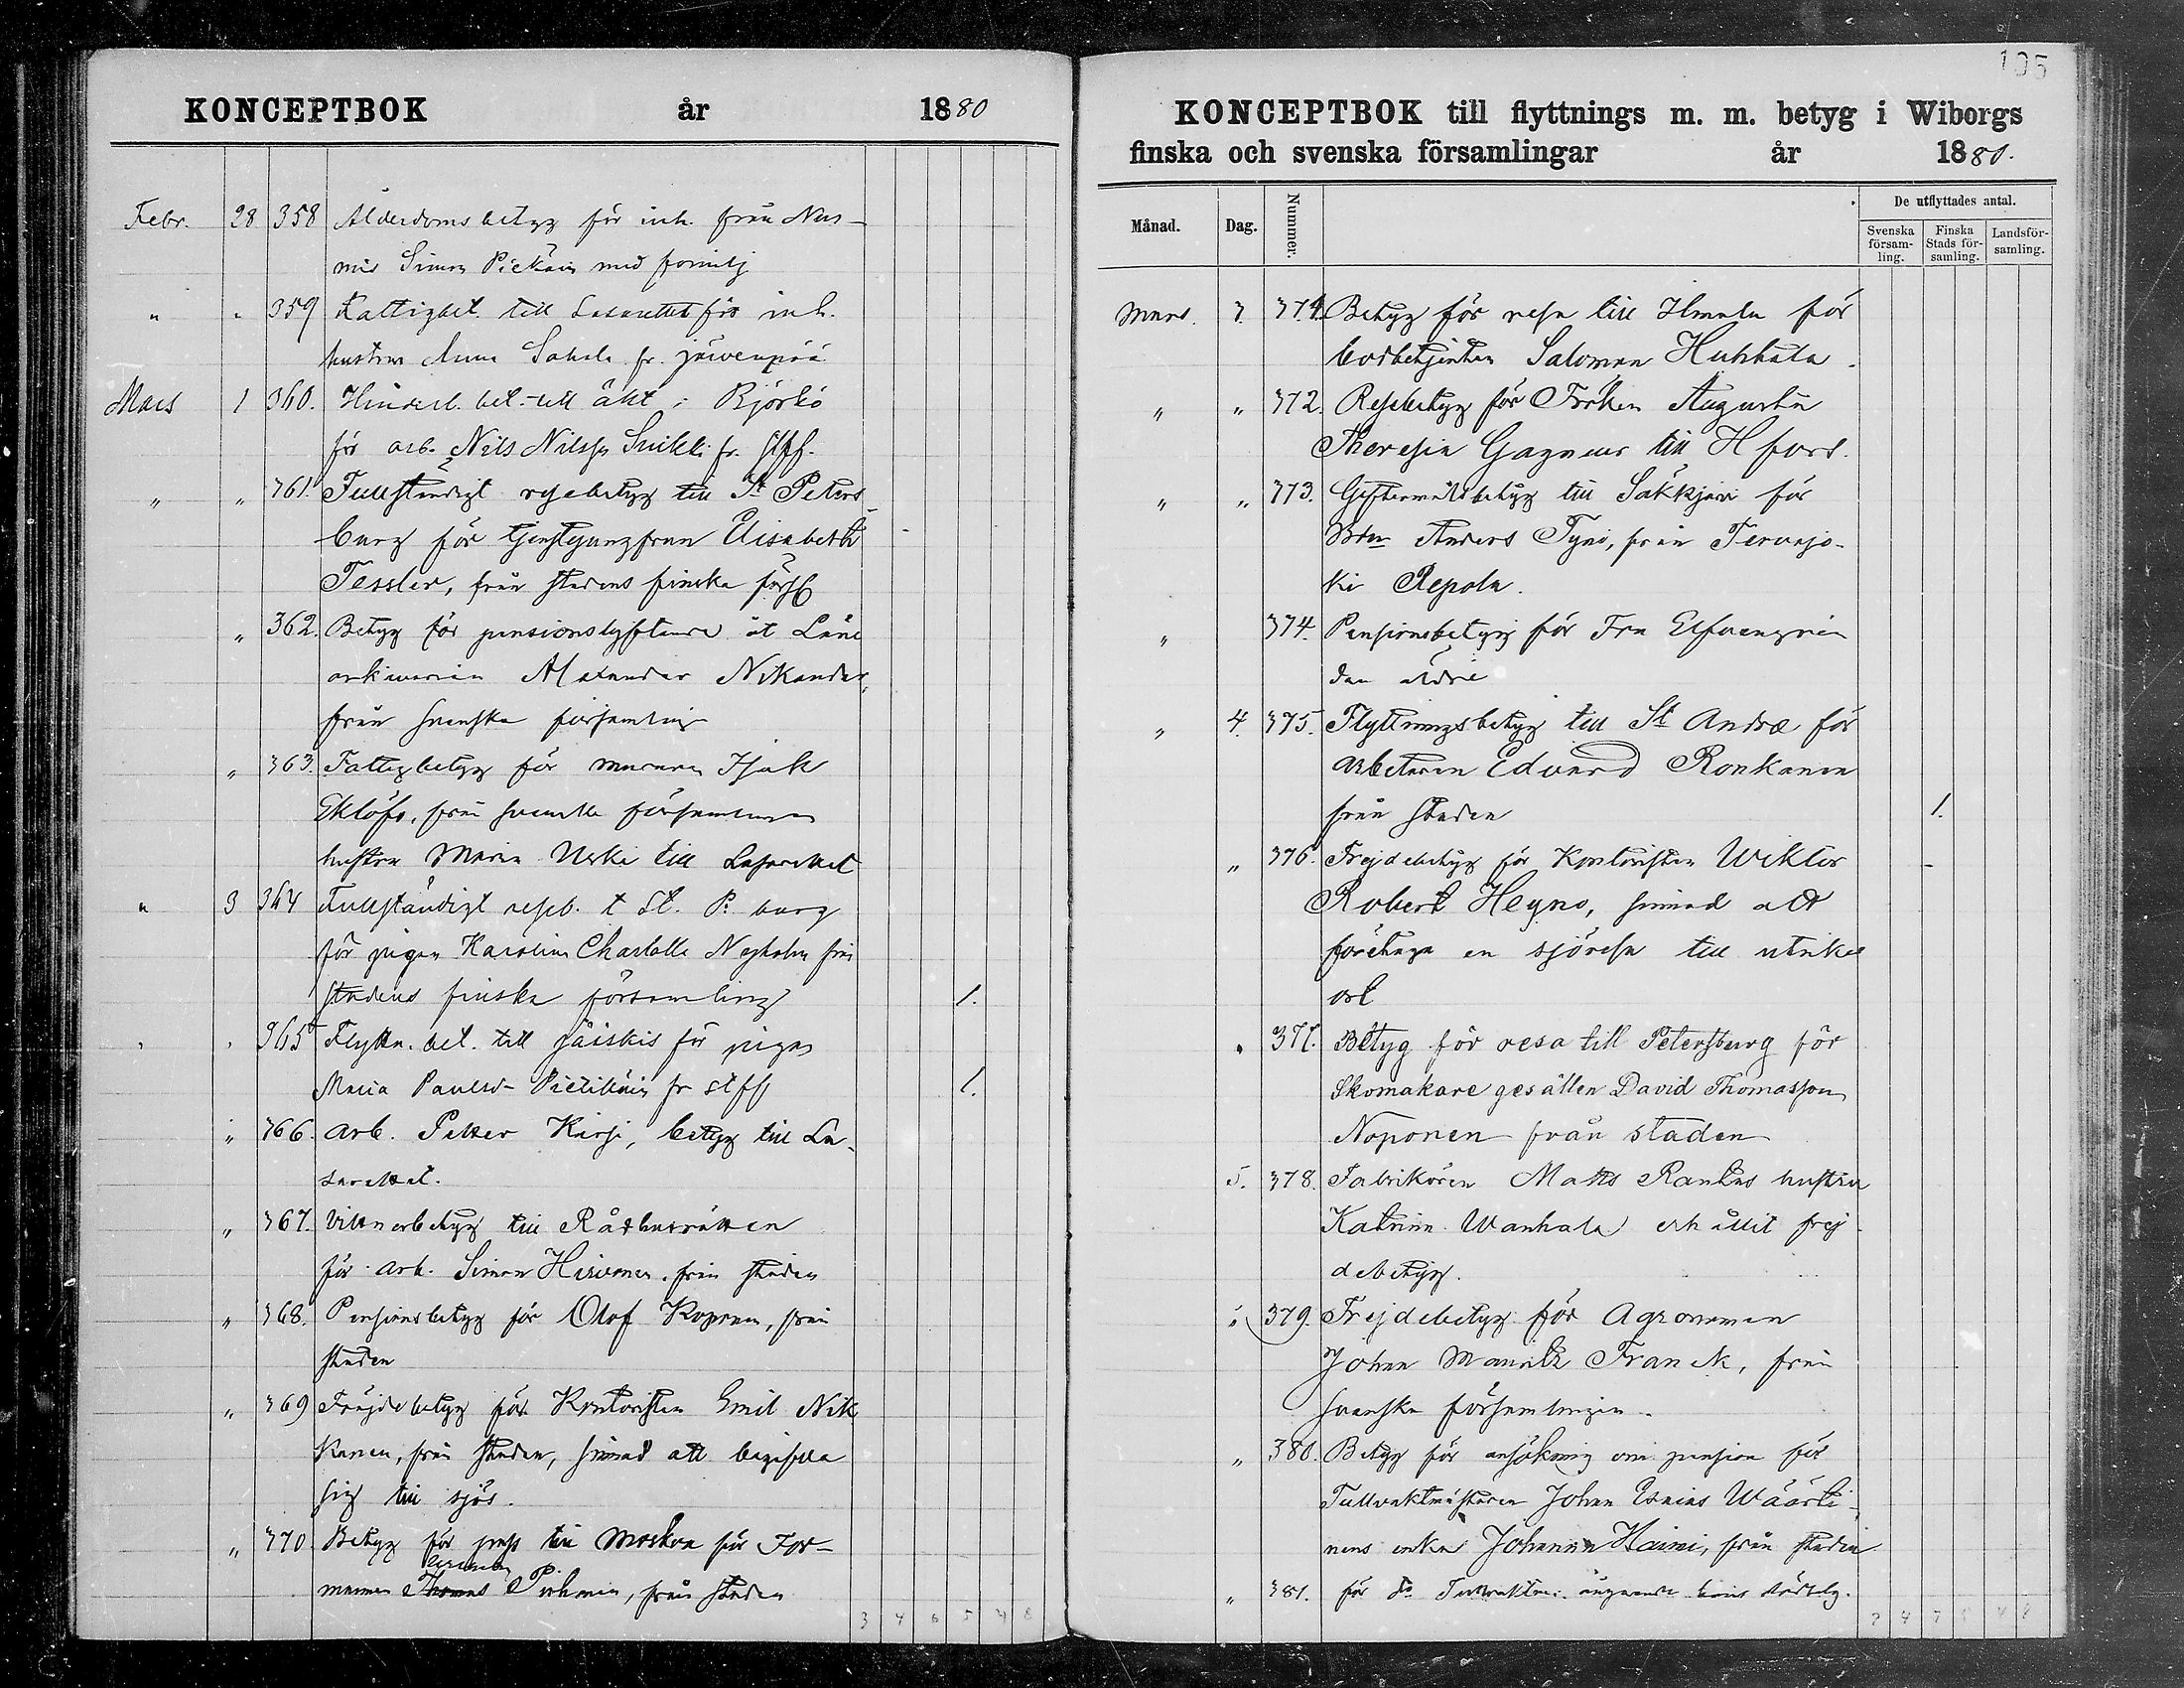 KONCEPTBOK år 1880
Febr. 28 358 Ålderdoms betyg för inh. från Nur-
mis Simon Pickäin med familj
" " 359 Fattigbet. till Lasarettet för inh.
hustrun Anna Sakala fr. Järvenpää
Mars 1 360. Hinderl. bet. till äkt. i Björkö
för arb. Nils Nilsson Suikki fr. Stff.
" " 361. Fullständigt resebetyg till St Peters-
burg för tjenstejungfrun Elisabeth
Tessler, från stadens finska förs
" 362. Betyg för pensionslyftande åt Läne
arkivarien Alexander Nikander,
från svenska församling
" 363. Fattigbetyg för muraren Isak
Eklöfs, från svenska församlingen
hustru Maria Uski till Lasarettet
" 3 364 Fullständigt reseb. t St. P. burg
för pigan Karolina Charlotta Nyholm från
stadens finska församling 1.
" " 365 Flyttn. bet. till Jääskis för pigan
Maria Paulsd. Pietiläin fr stff 1.
" 366. Arb. Petter Kirsi, betyg till La-
sarettet.
" 367. Vittnesbetyg till Rådhusrätten
för arb. Simon Hirvonen. från staden
" 368. Pensionsbetyg för Olof Koponen, från
staden
" 369 Fräjdebetyg för Kontoristen Emil Nik
kanen, från staden, sinnad att begifva
sig till sjös.
" 370. Betyg för pass till Moskva för For-
mannen Thomas Puhanen, från staden
3 4 6 5 4 8
105
KONCEPTBOK till flyttnings m. m. betyg i Wiborgs
finska och svenska församlingar år 1880.
Månad. Dag. Nummer. De utflyttades antal.
Svenska församling. Finska Stads församling. Landsförsamling.
Mars. 3. 371. Betyg för resa till Himola för
bodbetjenten Salomon Hukkala.
" " 372. Resebetyg för Fröken Augusta
Theresia Gagneur till Hfors.
" " 373. Giftermålsbetyg till Säkkjärvi för
Bdn Anders Tyni, från Tervajo-
ki Repola.
" 374. Pensionsbetyg för Fru Elfvengren
den äldre
" 4. 375. Flyttningsbetyg till St Andræ för
arbetaren Edvard Ronkanen
från staden 1.
" 376. Frejdebetyg för Kontoristen Wiktor
Robert Heyno, sinnad att
företaga en sjöresa till utrikes
ort
" 377. Betyg för resa till Petersburg för
Skomakare gesällen David Thomasson
Noponen från staden
5. 378. Fabrikören Matts Rankas hustru
Katrina Wanhala erhållit frej-
debetyg.
" 379. Frejdebetyg för Agronomen
Johan Mauritz Franck, från
svenska församlingen.
" 380. Betyg för ansökning om pension för
Tullvaktmästaren Johan Esaias Wäärti-
nens enka Johanna Haimi, från staden
" 381. för do Tullvaktm. angående hans dödsdag.